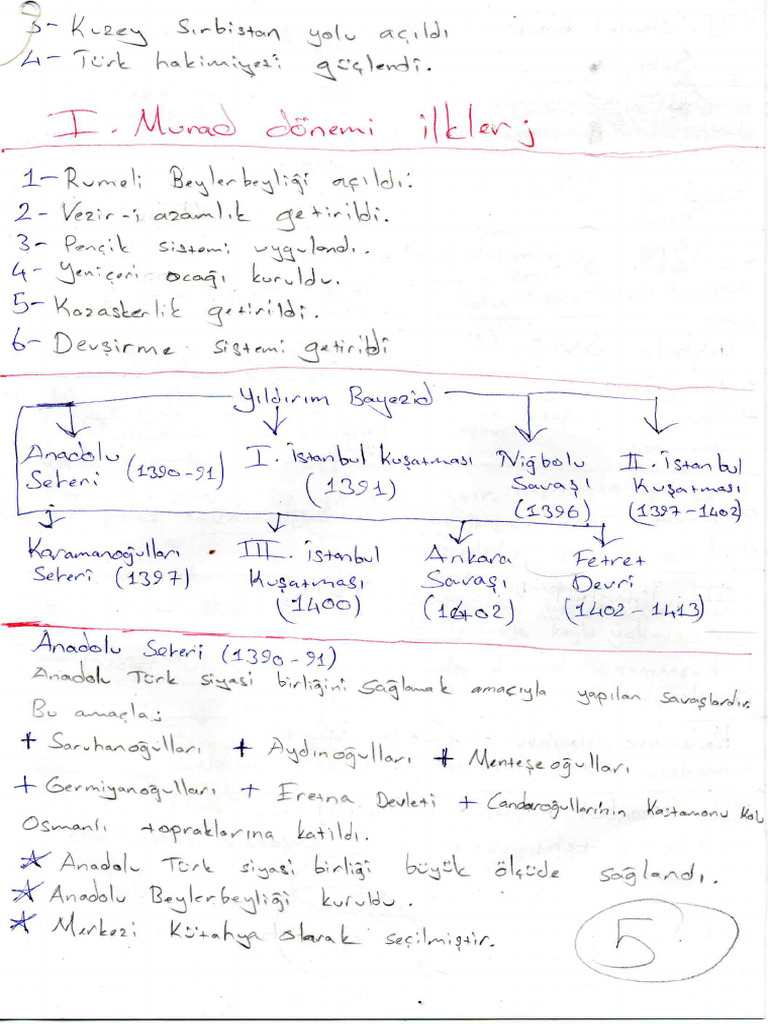 3- Kuzey Sırbistan yolu açıldı
4- Türk hakimiyeti güçlendi.
I. Murad dönemi ilkleri
1- Rumeli Beylerbeyliği açıldı.
2- Vezir-i azamlık getirildi.
3- Pençik sistemi uygulandı.
4- Yeniçeri ocağı kuruldu.
5- Kazaskerlik getirildi.
6- Devşirme sistemi getirildi
Yıldırım Bayezid
Anadolu Seferi (1390-91)
I. İstanbul Kuşatması (1391)
Niğbolu Savaşı (1396)
II. İstanbul Kuşatması (1397-1402)
Karamanoğulları Seferi (1397)
III. İstanbul Kuşatması (1400)
Ankara Savaşı (1402)
Fetret Devri (1402-1413)
Anadolu Seferi (1390-91)
Anadolu Türk siyasi birliğini sağlamak amacıyla yapılan savaşlardır.
Bu amaçla;
+ Saruhanoğulları + Aydınoğulları + Menteşeoğulları
+ Germiyanoğulları + Eretna Devleti + Candaroğullarının Kastamonu Kolu
Osmanlı topraklarına katıldı.
* Anadolu Türk siyasi birliği büyük ölçüde sağlandı.
* Anadolu Beylerbeyliği kuruldu.
* Merkezi Kütahya olarak seçilmiştir.
5